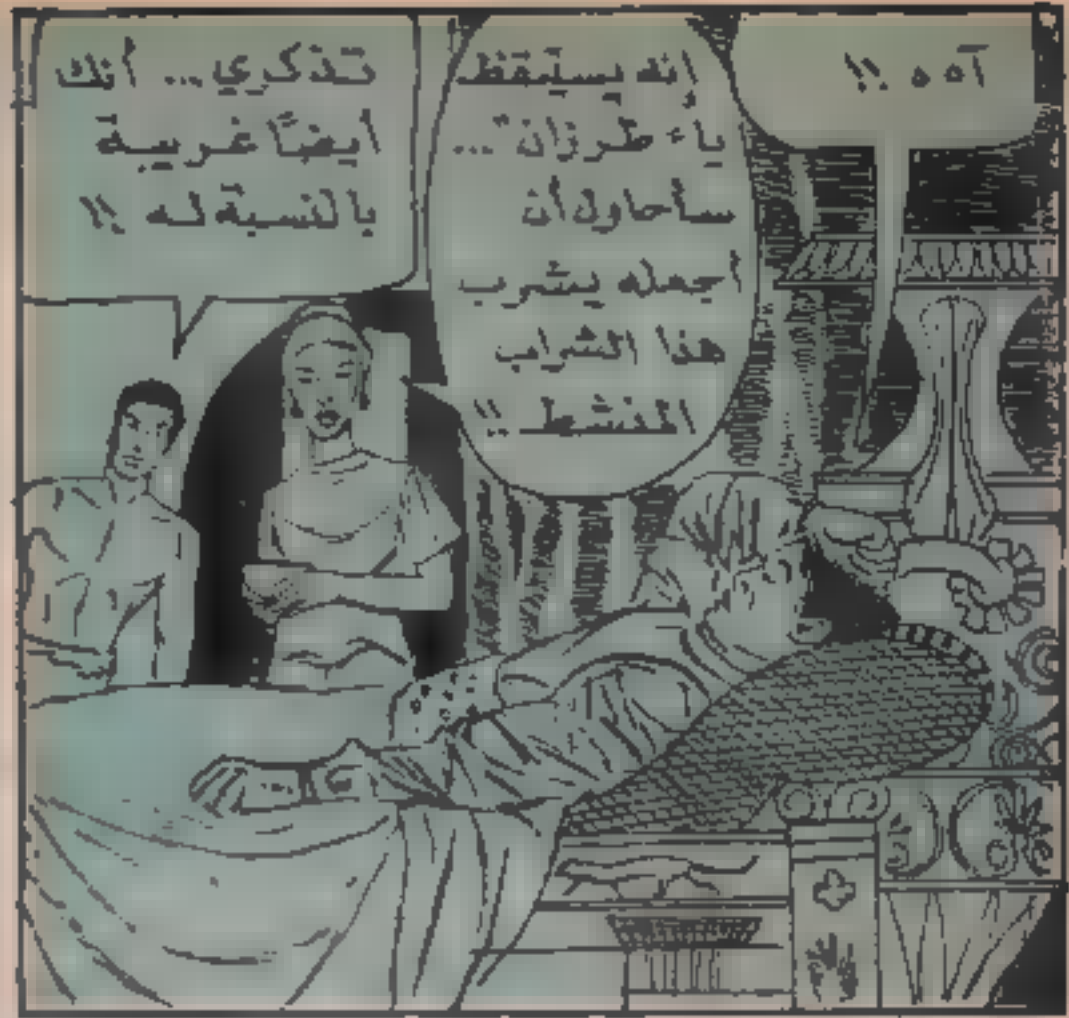 آه ه !!
إنه يستيقظ
يا " طرزان " ...
سأحاول أن
أجعله يشرب
هذا الشراب
المنشط !!
تذكري ... أنك
أيضًا غريبة
بالنسبة له !!